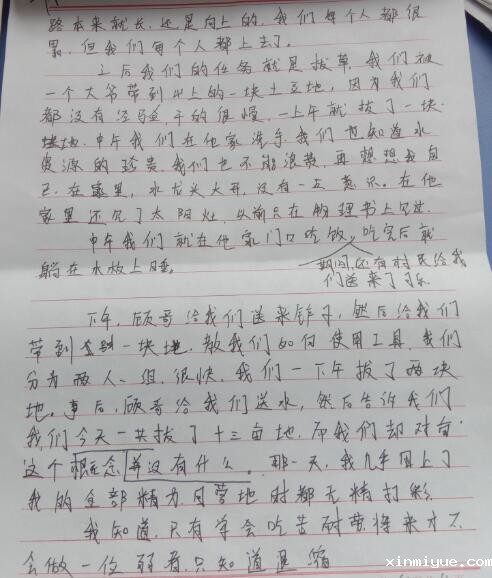 路本来就长,还是向上的,我们每个人都很
累,但我们每个人都上去了。
之后我们的任务就是拔草,我们被
一个大爷带到山上的一块土豆地,因为我们
都没有经验,干的很慢,一上午就拔了一块
中午我们在他家洗手,我们也知道水
资源的珍贵,我们也不能浪费,再想想我自
己,在家里,水龙头大开,没有一点意识。在他
家里还见了太阳灶,以前只在物理书上见过.
中午我们就在他家门口吃饭,吃完后就
躺在水坝上睡。
期间,还有村民给我
们送来了瓜
下午,顾哥给我们送来铲子,然后给我们
带到另一块地,教我们如何使用工具,我们
分为两人一组,很快,我们一下午拔了两块
地。事后,顾哥给我们送水,然后告诉我们
我们今天一共拔了十三亩地,而我们却对亩
这个概念并没有什么。那一天,我几乎用上了
我的全部精力,回营地时都无精打彩
我知道,只有学会吃苦耐劳,将来才不
会做一位弱者,只知道退缩
xinmiyue.com